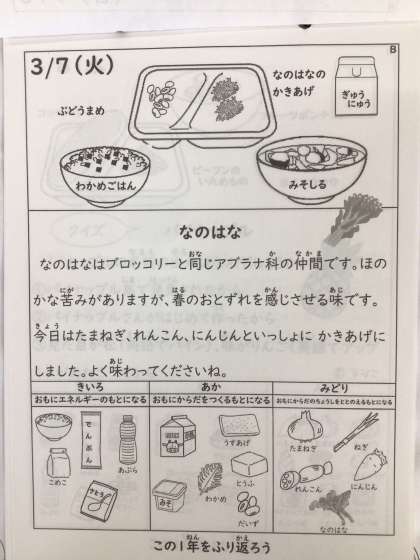 B
3/7(火)
ぶどうまめ
なのはなの
かきあげ
ぎゅう
にゅう
わかめごはん
みそしる
なのはな
なのはなはブロッコリーと同じアブラナ科の仲間です。ほの
かな苦みがありますが、春のおとずれを感じさせる味です。
今日はたまねぎ、れんこん、にんじんといっしょに かきあげに
しました。よく味わってくださいね。
きいろ
おもにエネルギーのもとになる
あか
おもにからだをつくるもとになる
みどり
おもにからだのちょうしをととのえるもとになる
でんぷん
こめこ
さとう
あぶら
うすあげ
とうふ
みそ
わかめ
だいず
たまねぎ
ねぎ
れんこん
にんじん
なのはな
この1年をふり返ろう